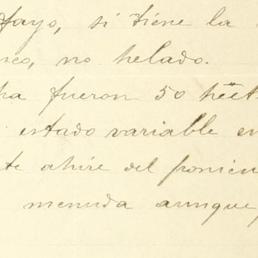 Tayo, si tiene la
no helado.
fueron 50 hect
estado variable en
te ahire del ponien
menuda aunque